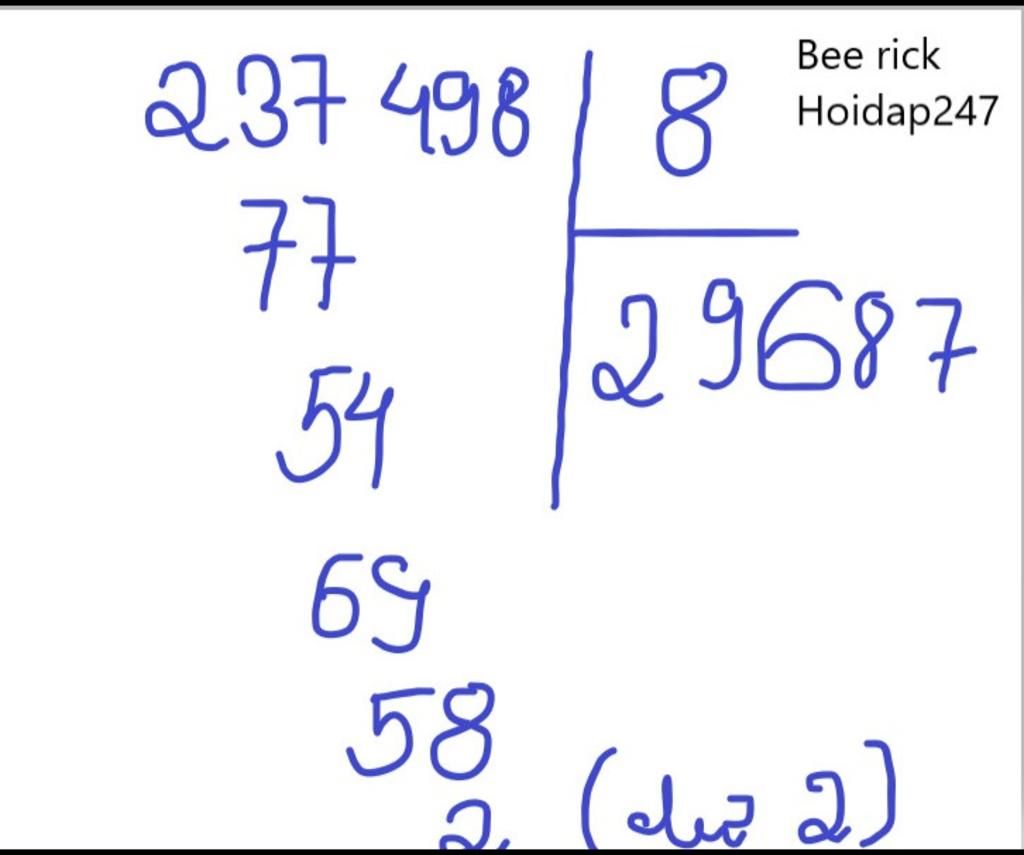 237 498 8
Bee rick
Hoidap247
77
29687
54
69
58
2 (dư 2)